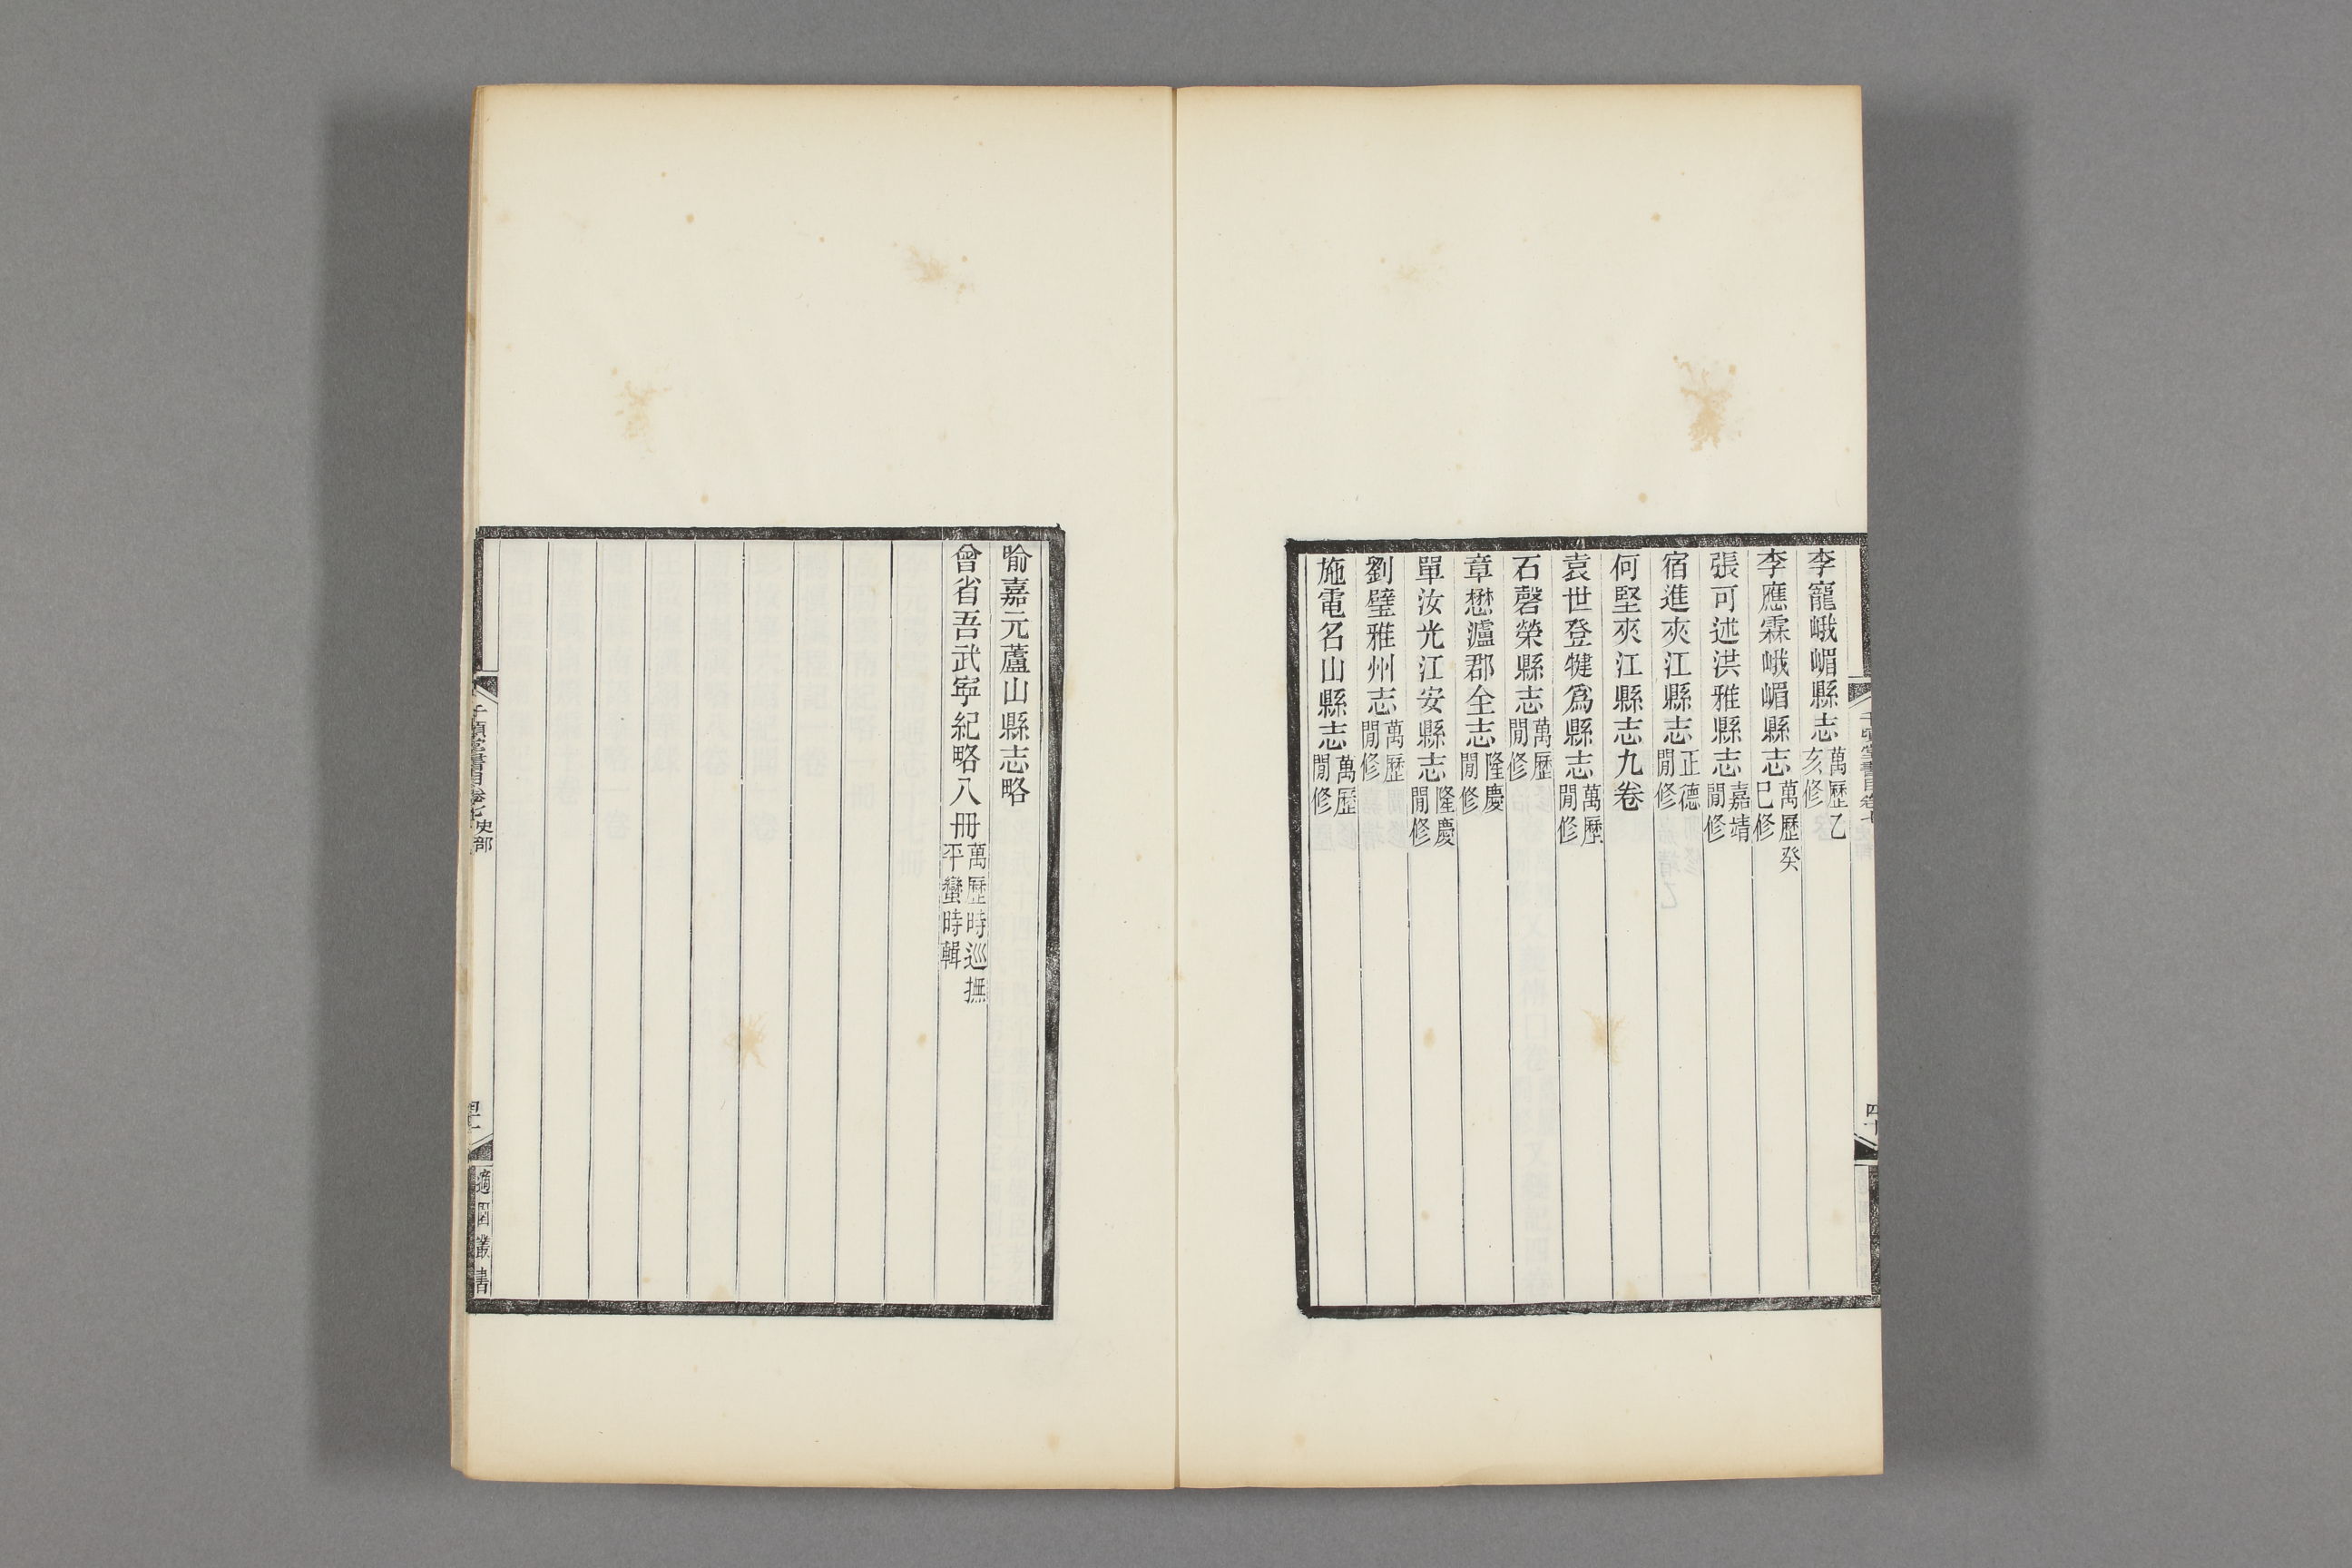 李寵峨嵋縣志萬歷乙亥修
李應霖峨嵋縣志萬歷癸巳修
張可述洪雅縣志嘉靖閒修
宿進夾江縣志正德閒修
何堅夾江縣志九卷
袁世登犍爲縣志萬歷閒修
石磬榮縣志萬歷閒修
章懋瀘郡全志隆慶閒修
單汝光江安縣志隆慶閒修
劉璧雅州志萬歷閒修
施電名山縣志萬歷閒修
喻嘉元蘆山縣志略
曾省吾武寧紀略八冊萬歷時巡撫平蠻時輯
千頃堂書目卷七 史部
適園叢書